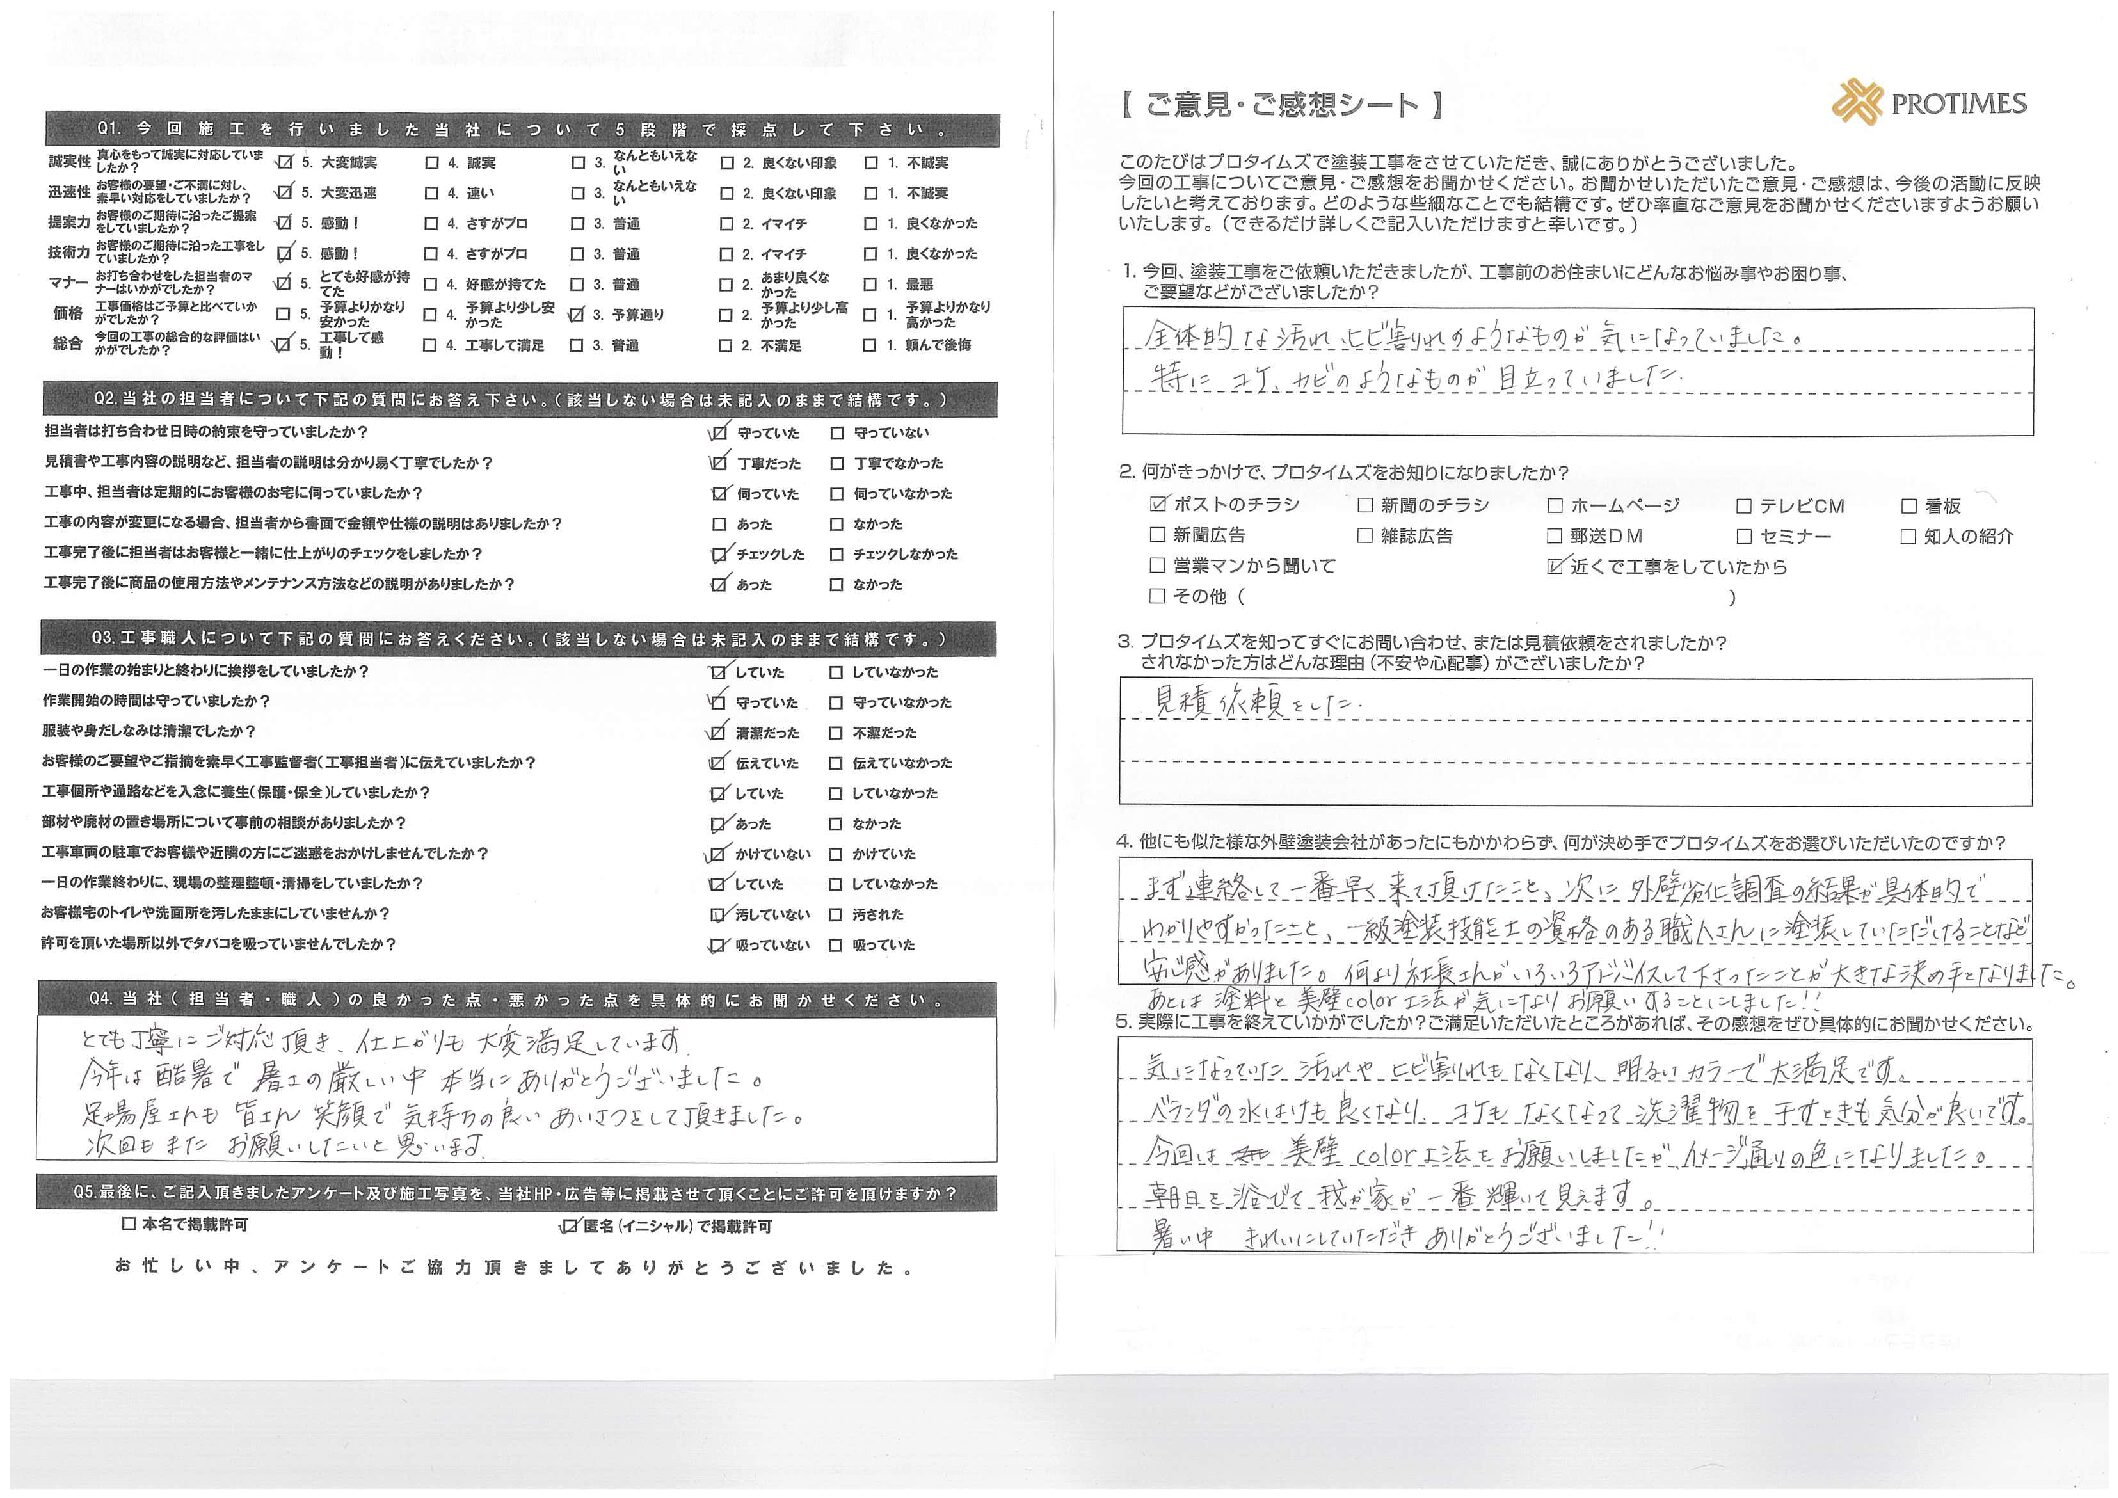 Q1.今回施工を行いました当社について5段階で採点して下さい。
誠実性 真心をもって誠実に対応していましたか? ☑ 5. 大変誠実 □ 4. 誠実 □ 3. なんともいえない □ 2. 良くない印象 □ 1. 不誠実
迅速性 お客様の要望・ご不満に対し、素早い対応をしていましたか? ☑ 5. 大変迅速 □ 4. 速い □ 3. なんともいえない □ 2. 良くない印象 □ 1. 不誠実
提案力 お客様のご期待に沿ったご提案をしていましたか? ☑ 5. 感動! □ 4. さすがプロ □ 3. 普通 □ 2. イマイチ □ 1. 良くなかった
技術力 お客様のご期待に沿った工事をしていましたか? ☑ 5. 感動! □ 4. さすがプロ □ 3. 普通 □ 2. イマイチ □ 1. 良くなかった
マナー お打ち合わせをした担当者のマナーはいかがでしたか? ☑ 5. とても好感が持てた □ 4. 好感が持てた □ 3. 普通 □ 2. あまり良くなかった □ 1. 最悪
価格 工事価格はご予算と比べていかがでしたか? □ 5. 予算よりかなり安かった □ 4. 予算より少し安かった ☑ 3. 予算通り □ 2. 予算より少し高かった □ 1. 予算よりかなり高かった
総合 今回の工事の総合的な評価はいかがでしたか? ☑ 5. 工事して感動! □ 4. 工事して満足 □ 3. 普通 □ 2. 不満足 □ 1. 頼んで後悔
Q2.当社の担当者について下記の質問にお答え下さい。(該当しない場合は未記入のままで結構です。)
担当者は打ち合わせ日時の約束を守っていましたか? ☑ 守っていた □ 守っていない
見積書や工事内容の説明など、担当者の説明は分かり易く丁寧でしたか? ☑ 丁寧だった □ 丁寧でなかった
工事中、担当者は定期的にお客様のお宅に伺っていましたか? ☑ 伺っていた □ 伺っていなかった
工事の内容が変更になる場合、担当者から書面で金額や仕様の説明はありましたか? □ あった □ なかった
工事完了後に担当者はお客様と一緒に仕上がりのチェックをしましたか? ☑ チェックした □ チェックしなかった
工事完了後に商品の使用方法やメンテナンス方法などの説明がありましたか? ☑ あった □ なかった
Q3.工事職人について下記の質問にお答えください。(該当しない場合は未記入のままで結構です。)
一日の作業の始まりと終わりに挨拶をしていましたか? ☑ していた □ していなかった
作業開始の時間は守っていましたか? ☑ 守っていた □ 守っていなかった
服装や身だしなみは清潔でしたか? ☑ 清潔だった □ 不潔だった
お客様のご要望やご指摘を素早く工事監督者(工事担当者)に伝えていましたか? ☑ 伝えていた □ 伝えていなかった
工事個所や通路などを入念に養生(保護・保全)していましたか? ☑ していた □ していなかった
部材や廃材の置き場所について事前の相談がありましたか? ☑ あった □ なかった
工事車両の駐車でお客様や近隣の方にご迷惑をおかけしませんでしたか? ☑ かけていない □ かけていた
一日の作業終わりに、現場の整理整頓・清掃をしていましたか? ☑ していた □ していなかった
お客様宅のトイレや洗面所を汚したままにしていませんか? ☑ 汚していない □ 汚された
許可を頂いた場所以外でタバコを吸っていませんでしたか? ☑ 吸っていない □ 吸っていた
Q4.当社(担当者・職人)の良かった点・悪かった点を具体的にお聞かせください。
とても丁寧にご対応頂き、仕上がりも大変満足しています。
今年は酷暑で暑さの厳しい中本当にありがとうございました。
足場屋さんも皆さん笑顔で気持ちの良いあいさつをして頂きました。
次回もまたお願いしたいと思います
Q5.最後に、ご記入頂きましたアンケート及び施工写真を、当社HP・広告等に掲載させて頂くことにご許可を頂けますか?
□ 本名で掲載許可 ☑ 匿名(イニシャル)で掲載許可
お忙しい中、アンケートご協力頂きましてありがとうございました。
【ご意見・ご感想シート】
PROTIMES
このたびはプロタイムズで塗装工事をさせていただき、誠にありがとうございました。
今回の工事についてご意見・ご感想をお聞かせください。お聞かせいただいたご意見・ご感想は、今後の活動に反映
したいと考えております。どのような些細なことでも結構です。ぜひ率直なご意見をお聞かせくださいますようお願い
いたします。(できるだけ詳しくご記入いただけますと幸いです。)
1. 今回、塗装工事をご依頼いただきましたが、工事前のお住まいにどんなお悩み事やお困り事、
ご要望などがございましたか?
全体的な汚れ、ヒビ割れのようなものが気になっていました。
特にコケ、カビのようなものが目立っていました。
2. 何がきっかけで、プロタイムズをお知りになりましたか?
☑ ポストのチラシ □ 新聞のチラシ □ ホームページ □ テレビCM □ 看板
□ 新聞広告 □ 雑誌広告 □ 郵送DM □ セミナー □ 知人の紹介
□ 営業マンから聞いて ☑ 近くで工事をしていたから
□ その他( )
3. プロタイムズを知ってすぐにお問い合わせ、または見積依頼をされましたか?
されなかった方はどんな理由(不安や心配事)がございましたか?
見積依頼をした。
4. 他にも似た様な外壁塗装会社があったにもかかわらず、何が決め手でプロタイムズをお選びいただいたのですか?
まず連絡して一番早く来て頂けたこと、次に外壁劣化調査の結果が具体的で
わかりやすかったこと、一級塗装技能士の資格のある職人さんに塗装していただけることなど
安心感がありました。何より社長さんがいろいろアドバイスして下さったことが大きな決め手となりました。
あとは塗料と美壁color工法が気になりお願いすることにしました!!
5. 実際に工事を終えていかがでしたか?ご満足いただいたところがあれば、その感想をぜひ具体的にお聞かせください。
気になっていた汚れやヒビ割れもなくなり、明るいカラーで大満足です。
ベランダの水はけも良くなり、コケもなくなって洗濯物を干すときも気分が良いです。
今回は美壁color工法をお願いしましたが、イメージ通りの色になりました。
朝日を浴びて我が家が一番輝いて見えます。
暑い中きれいにしていただきありがとうございました!!